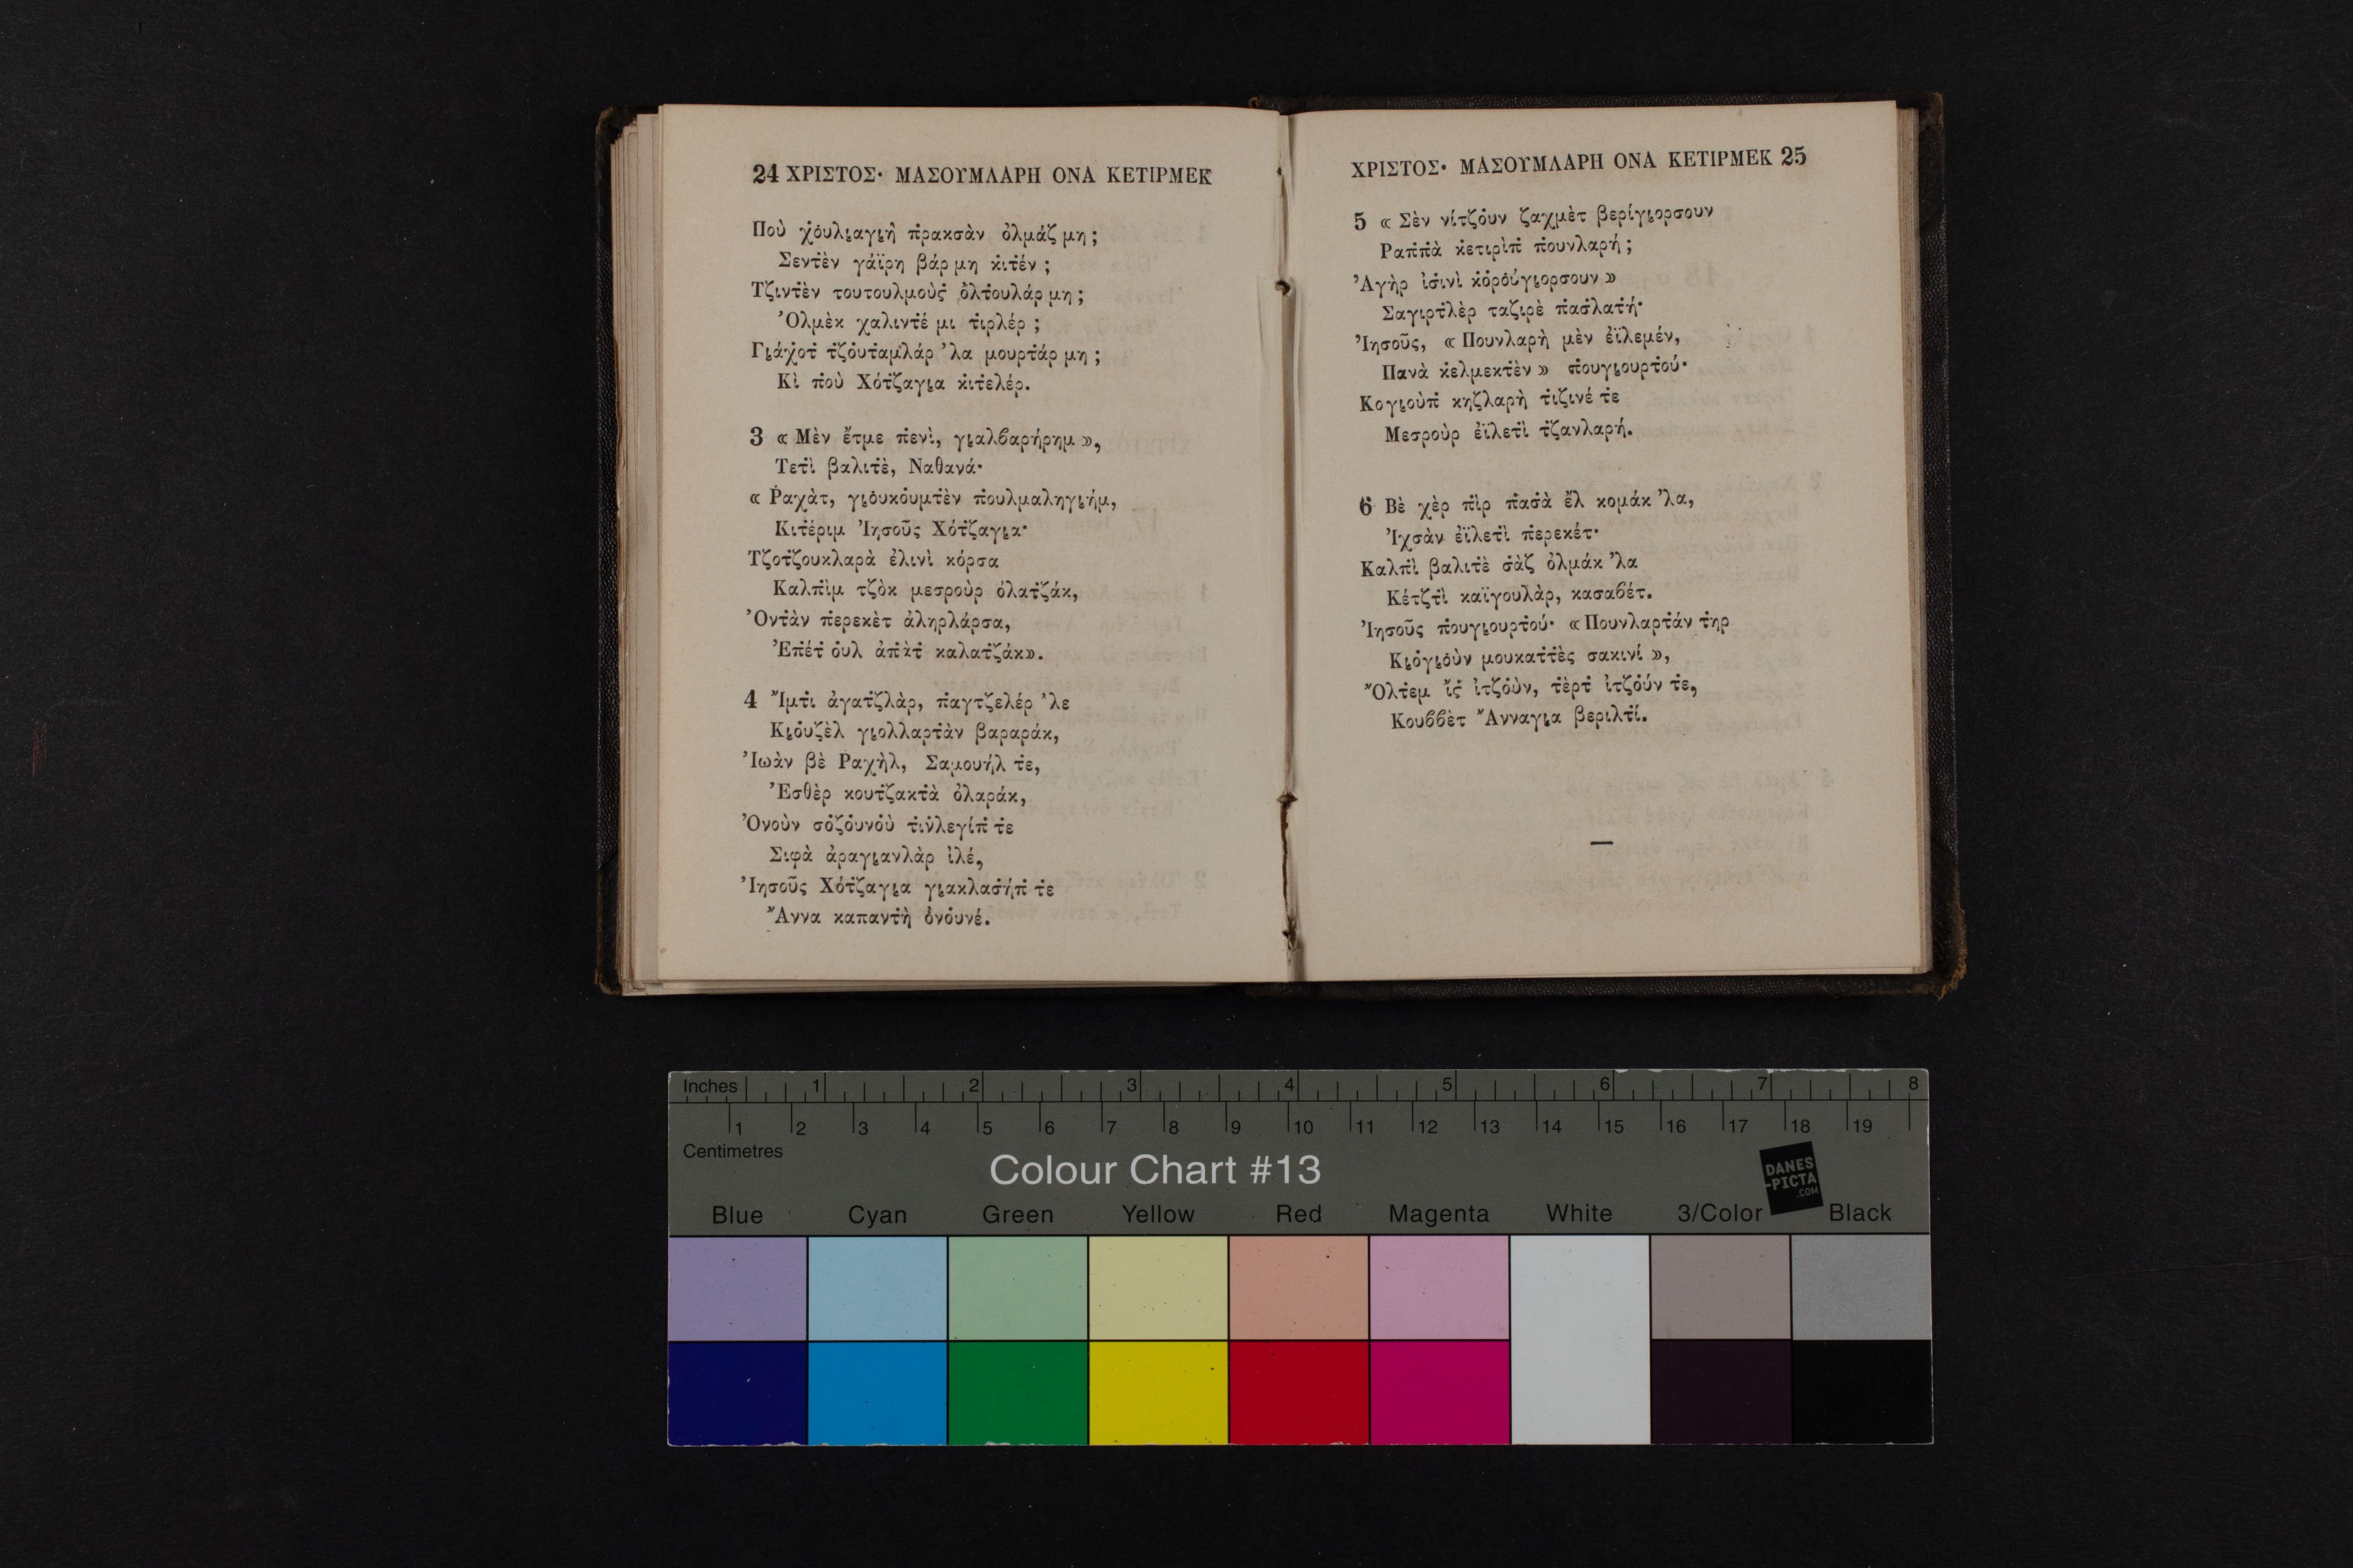 24 ΧΡΙΣΤΟΣ· ΜΑΣΟΥΜΛΑΡΗ ΟΝΑ ΚΕΤΙΡΜΕΚ
Ποὺ χ̇ο̇υλι̮αγι̮ὴ π̇ρακσὰν ὀλμάζ μη ;
Σεντ̇ὲν γάϊρη βάρ μη κ̇ιτέν ;
Τζιντ̇ὲν τουτουλμοὺς̇ ὀ̇λτ̇ουλάρ μη ;
Ὀ̇λμὲκ χαλιντ̇έ μι τ̇ιρλέρ ;
Γι̮άχ̇οτ̇ τζο̇υτ̇αμλάρ ’λα μουρτ̇άρ μη ;
Κὶ π̇οὺ Χότ̇ζαγι̮α κ̇ιτ̇ελέρ.
3 « Μὲν ἔτμε π̇ενὶ, γι̮αλβαρήρημ »,
Τετ̇ὶ βαλιτ̇ὲ, Ναθανά·
« Ῥαχὰτ, γι̮ο̇υκο̇υμτ̇ὲν π̇ουλμαληγι̮ήμ,
Κιτ̇έριμ Ἰησοῦς Χότ̇ζαγι̮α·
Τζοτ̇ζουκλαρὰ ἐλινὶ κόρσα
Καλπ̇ὶμ τζὸκ μεσροὺρ ὀλατ̇ζάκ,
Ὀντ̇ὰν π̇ερεκὲτ ἀληρλάρσα,
Ἐπ̇έτ̇ ο̇υλ ἀπ̇ὰτ̇ καλατ̇ζάκ».
4 Ἴμτ̇ι ἀγατ̇ζλὰρ, π̇αγτζελέρ ’λε
Κι̮ο̇υζὲλ γι̮ολλαρτ̇ὰν βαραράκ,
Ἰωὰν βὲ Ῥαχὴλ, Σαμουήλ τ̇ε,
Ἐσθὲρ κουτ̇ζακτ̇ὰ ὀλαράκ,
Ὀνοὺν σο̇ζο̇υνο̇ὺ τ̇ινλεγίπ̇ τ̇ε
Σιφὰ ἀραγι̮ανλὰρ ἰλέ,
Ἰησοῦς Χότ̇ζαγι̮α γι̮ακλασ̇ήπ̇ τ̇ε
Ἄννα καπαντ̇ὴ ὀ̇νο̇υνέ.
ΧΡΙΣΤΟΣ· ΜΑΣΟΥΜΛΑΡΗ ΟΝΑ ΚΕΤΙΡΜΕΚ 25
5 « Σὲν νίτζο̇υν ζαχμὲτ βερίγι̮ορσουν
Ραπ̇π̇ὰ κ̇ετιρὶπ̇ π̇ουνλαρή ;
Ἀγὴρ ἰσ̇ινὶ κο̇ρο̇ύγι̮ορσουν »
Σαγιρτ̇λὲρ ταζιρὲ π̇ασ̇λατ̇ή·
Ἰησοῦς, « Πουνλαρὴ μὲν ἐϊλεμέν,
Πανὰ κ̇ελμεκτ̇ὲν » π̇ουγι̮ουρτ̇ού·
Κογι̮οὺπ̇ κηζλαρὴ τ̇ιζινέ τ̇ε
Μεσροὺρ ἐϊλετ̇ὶ τζανλαρή.
6 Βὲ χὲρ π̇ὶρ π̇ασ̇ὰ ἔλ κομάκ ’λα,
Ἰχσὰν ἐϊλετ̇ὶ π̇ερεκέτ·
Καλπ̇ὶ βαλιτ̇ὲ σ̇ὰζ ὀλμάκ ’λα
Κέτζτ̇ὶ καϊγουλὰρ, κασαβέτ.
Ἰησοῦς π̇ουγι̮ουρτ̇ού· « Πουνλαρτ̇άν τ̇ηρ
Κι̮ο̇γι̮ο̇ὺν μουκατ̇τ̇ὲς σακινί »,
Ὄλτ̇εμ ἴς̇ ἰτζο̇ὺν, τ̇ὲρτ̇ ἰτζο̇ύν τ̇ε,
Κουββὲτ Ἄνναγι̮α βεριλτ̇ί.
Inches 1 2 3 4 5 6 7 8
1 2 3 4 5 6 7 8 9 10 11 12 13 14 15 16 17 18 19
Centimetres
Colour Chart #13
DANES
-PICTA
.COM
Blue Cyan Green Yellow Red Magenta White 3/Color Black